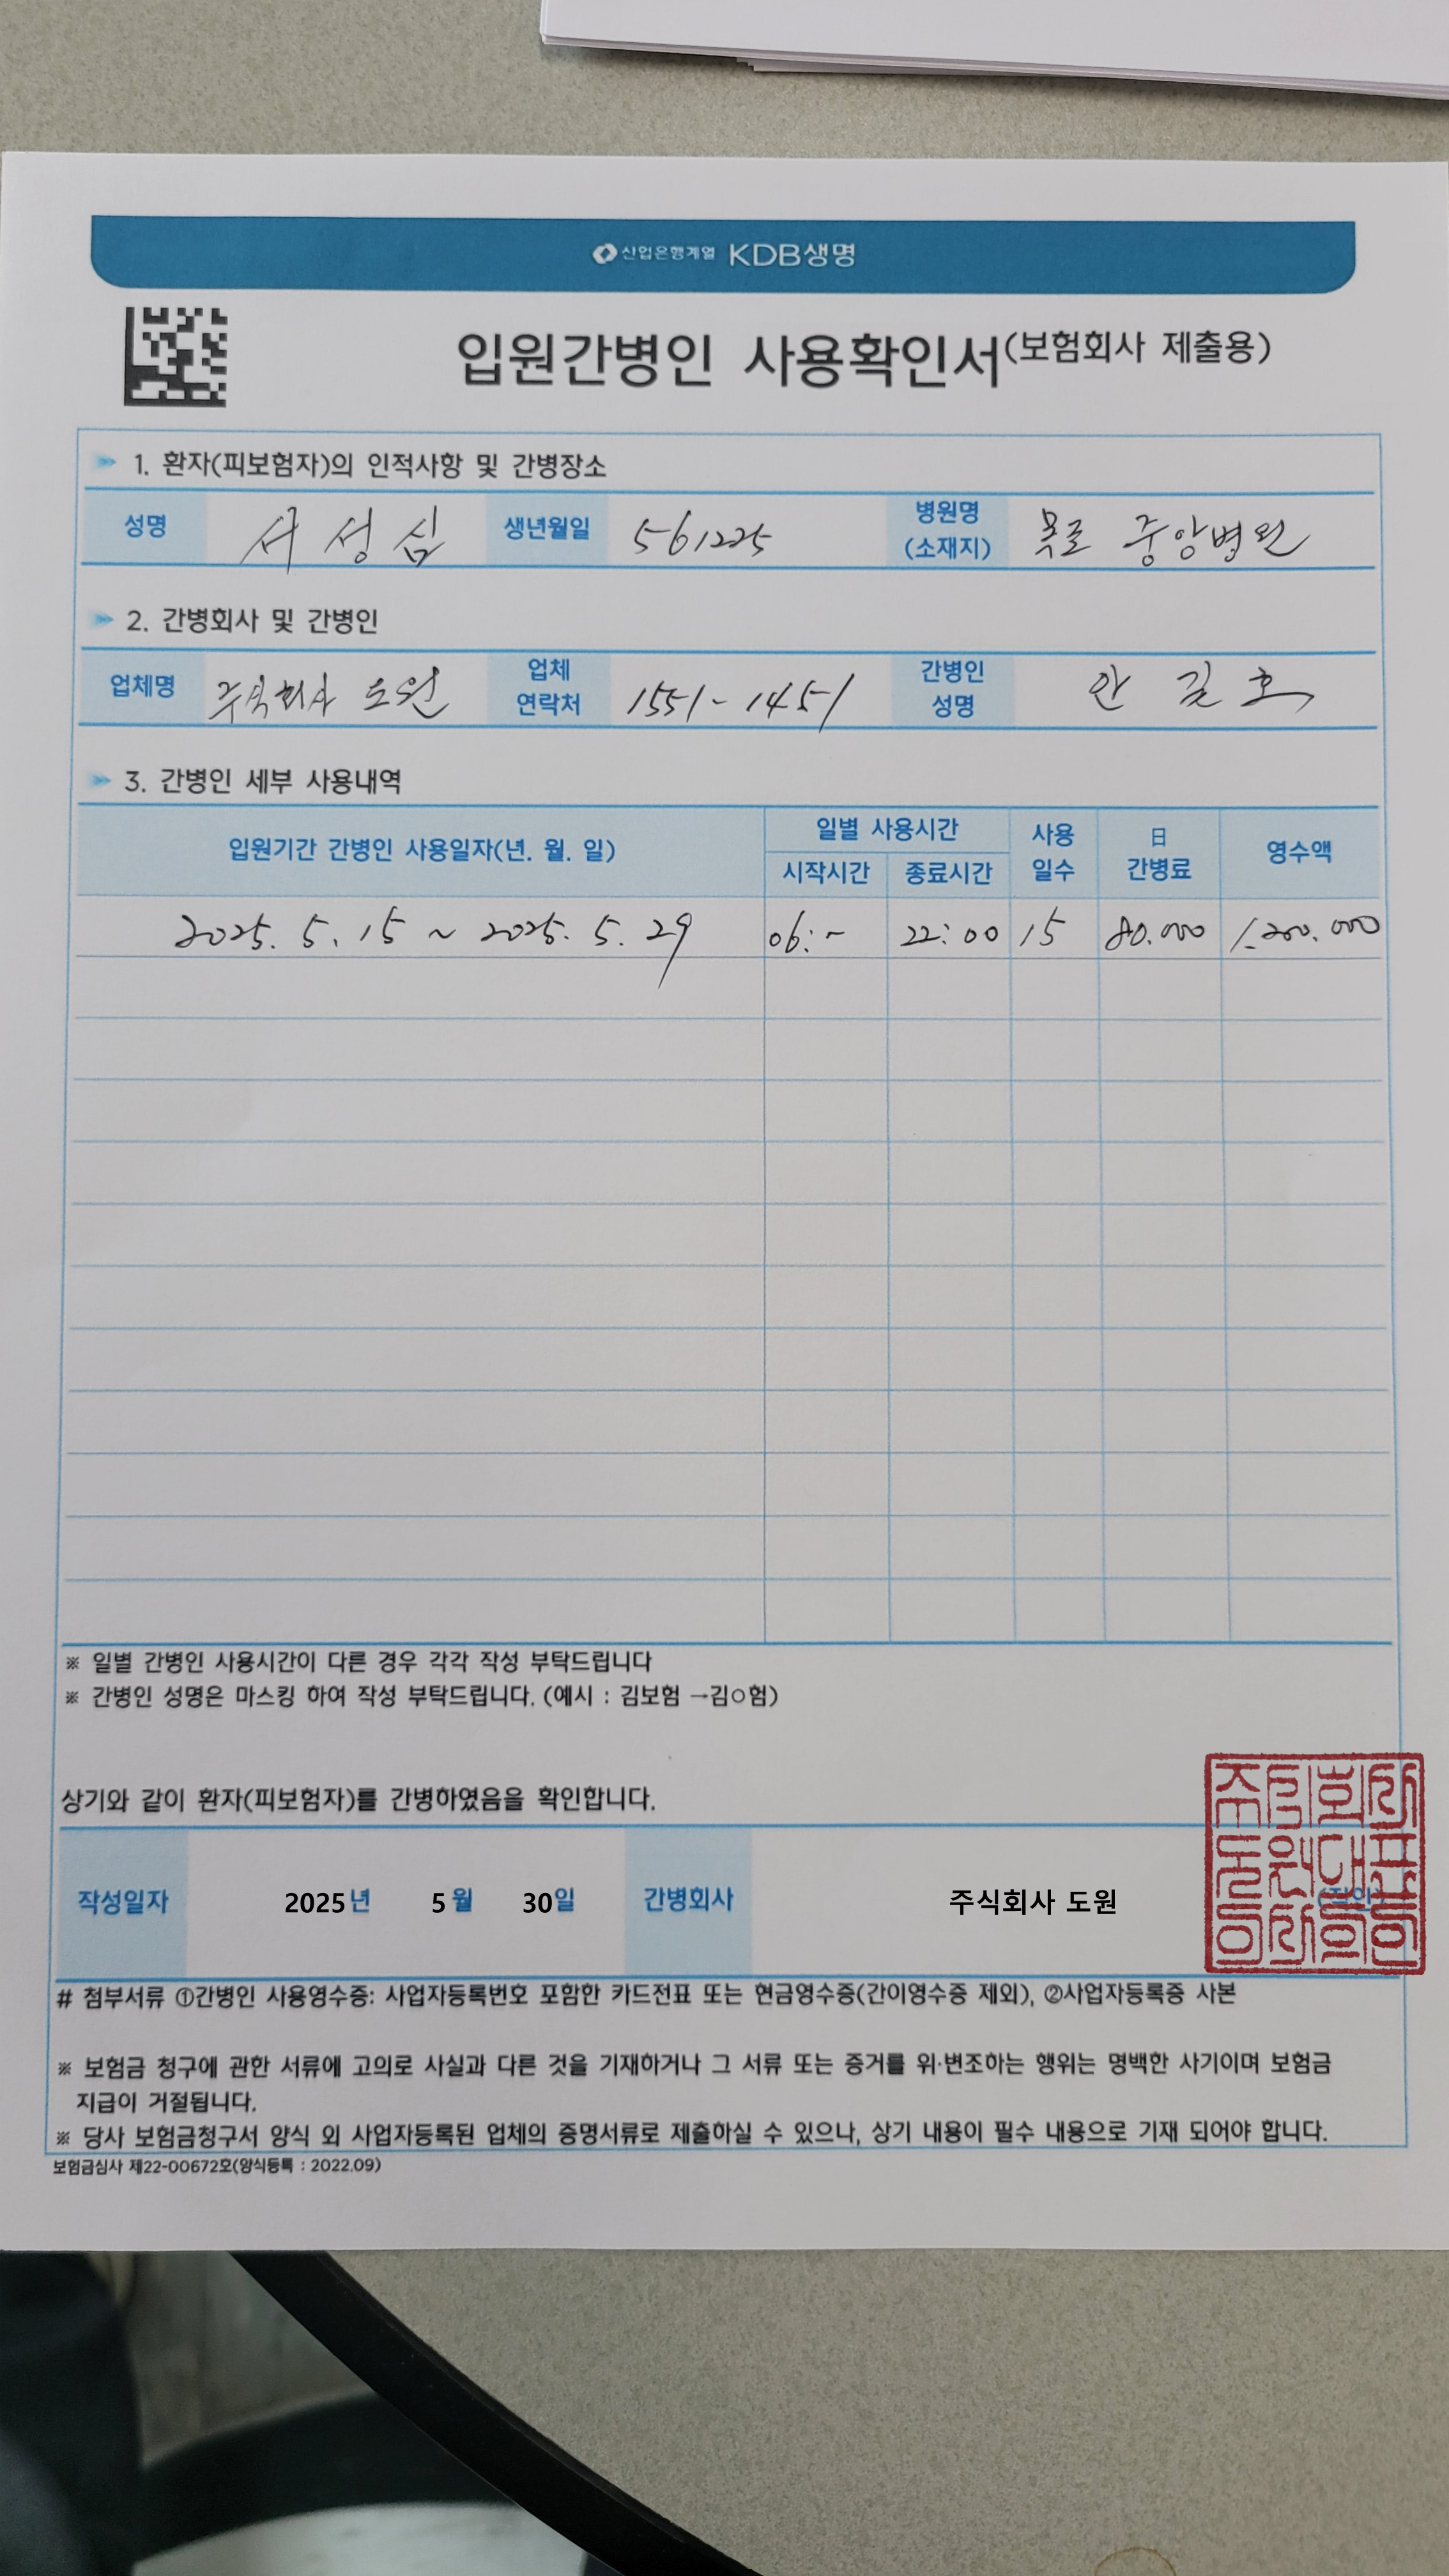 산업은행계열 KDB생명
입원간병인 사용확인서(보험회사 제출용)
1. 환자(피보험자)의 인적사항 및 간병장소
성명 서성심 생년월일 561225 병원명 (소재지) 목포 중앙병원
2. 간병회사 및 간병인
업체명 주식회사 도원 업체 연락처 1551-1451 간병인 성명 안길호
3. 간병인 세부 사용내역
입원기간 간병인 사용일자(년. 월. 일) 일별 사용시간 사용 일수 日 간병료 영수액
시작시간 종료시간
2025. 5. 15 ~ 2025. 5. 29 06:~ 22:00 15 80.000 1.200.000
※ 일별 간병인 사용시간이 다른 경우 각각 작성 부탁드립니다
※ 간병인 성명은 마스킹 하여 작성 부탁드립니다. (예시 : 김보험 →김○험)
상기와 같이 환자(피보험자)를 간병하였음을 확인합니다.
작성일자 2025년 5월 30일 간병회사 주식회사 도원 (직인)
주식회사
도원대표
# 첨부서류 ①간병인 사용영수증: 사업자등록번호 포함한 카드전표 또는 현금영수증(간이영수증 제외), ②사업자등록증 사본
※ 보험금 청구에 관한 서류에 고의로 사실과 다른 것을 기재하거나 그 서류 또는 증거를 위·변조하는 행위는 명백한 사기이며 보험금
지급이 거절됩니다.
※ 당사 보험금청구서 양식 외 사업자등록된 업체의 증명서류로 제출하실 수 있으나, 상기 내용이 필수 내용으로 기재 되어야 합니다.
보험금심사 제22-00672호(양식등록 : 2022.09)